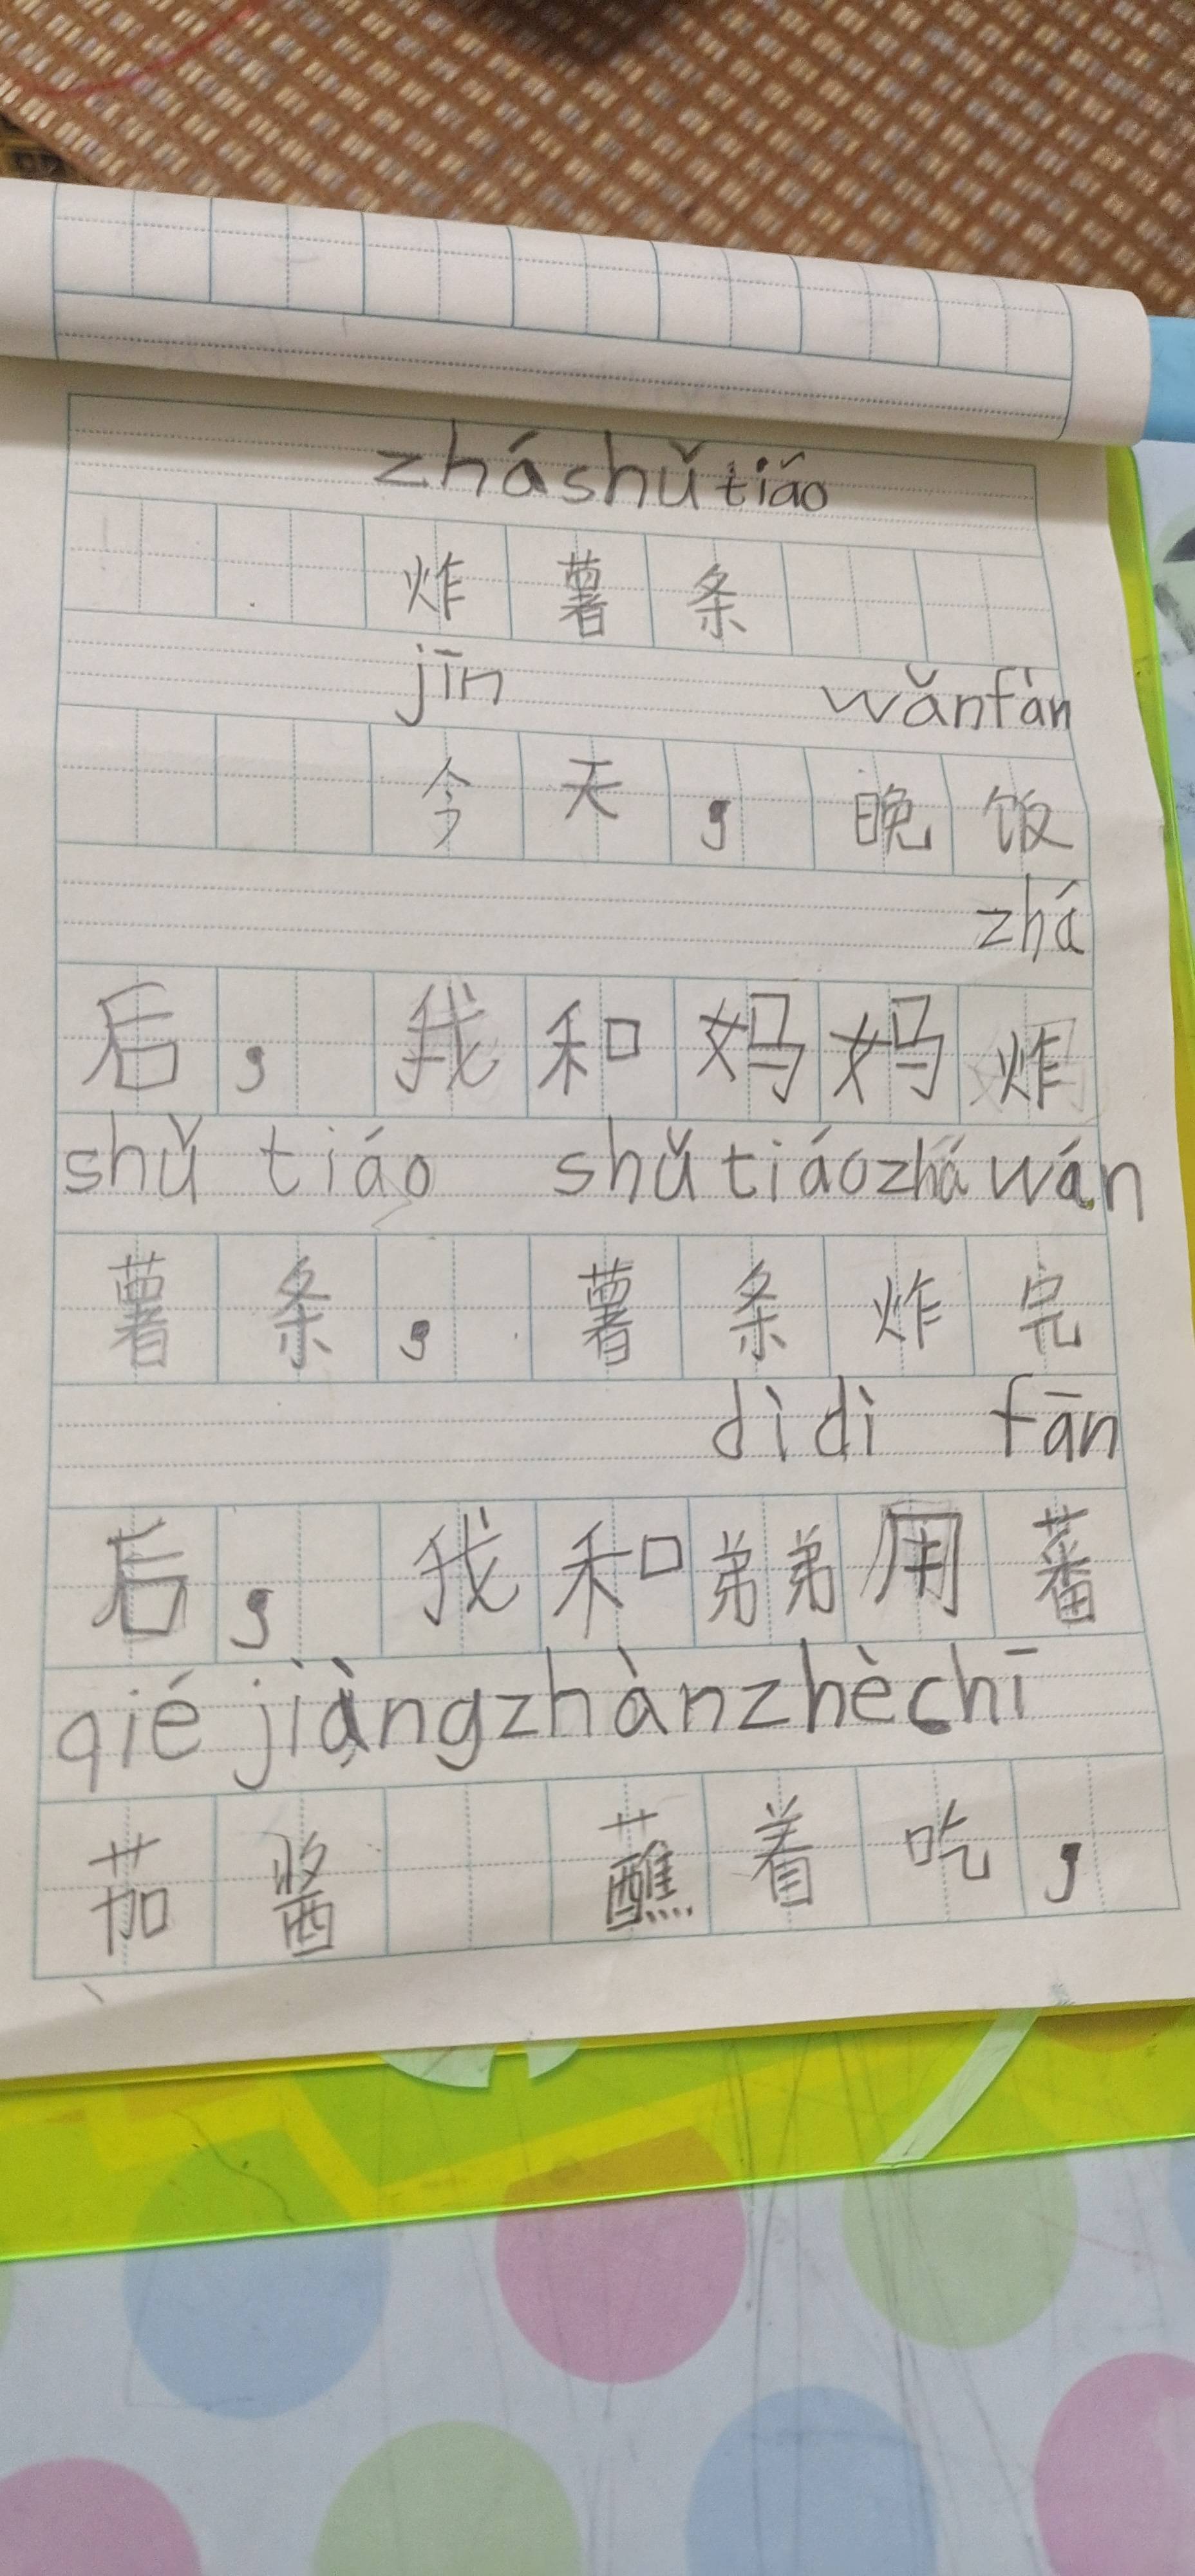 zháshǔtiáo
炸薯条
jīn wǎnfàn
今天，晚饭
zhá
后，我和妈妈炸
shǔ tiáo shǔtiáozháwán
薯条，薯条炸完
dìdì fān
后，我和弟弟用蕃
qié jiàngzhànzhèchī
茄酱 蘸着吃，